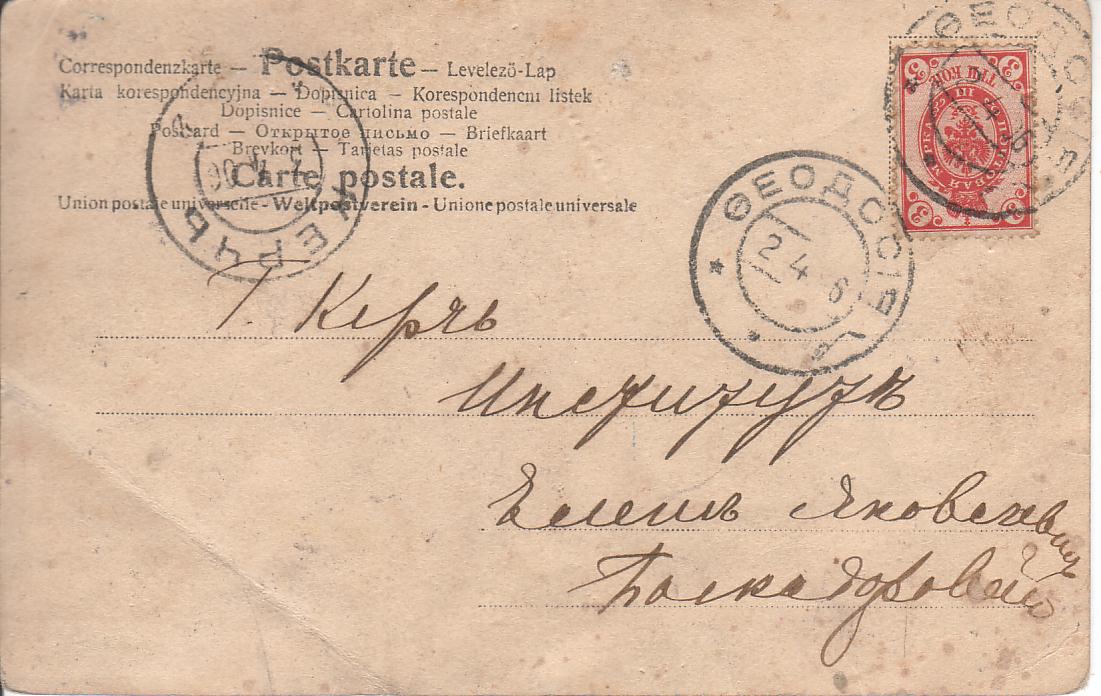 Correspondenzkarte — Postkarte — Levelező-Lap
Karta korespondencyjna — Dopisnica — Korespondencni listek
Dopisnice — Cartolina postale
Postcard — Открытое письмо — Briefkaart
Brevkort — Tarjetas postale
Carte postale.
Union postale universelle - Weltpostverein - Unione postale universale
КЕРЧЬ
ѲЕОДОСІЯ
2 4 6
ѲЕОДОСІЯ
3 ТРИ КОП 3
ПОЧТОВАЯ МАРКА
3 3
Г. Керчь
Институтъ
Еленѣ Яковлевнѣ